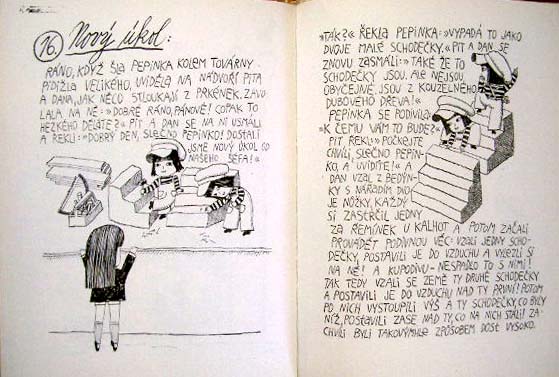 16. Nový úkol:
RÁNO, KDYŽ ŠLA PEPINKA KOLEM TOVÁRNY
PIDIŽLA VELIKÉHO, UVIDĚLA NA NÁDVOŘÍ PITA
A DANA, JAK NĚCO STLOUKAJÍ Z PRKÉNEK. ZAVO
LALA NA NĚ: »DOBRÉ RÁNO, PÁNOVÉ! COPAK TO
HEZKÉHO DĚLÁTE?« PIT A DAN SE NA NI USMÁLI
A ŘEKLI: »DOBRÝ DEN, SLEČNO PEPINKO! DOSTALI
JSME NOVÝ ÚKOL OD
NAŠEHO ŠÉFA!«
»TAK?« ŘEKLA PEPINKA: »VYPADÁ TO JAKO
DVOJE MALÉ SCHODEČKY.« PIT A DAN SE
ZNOVU ZASMÁLI: »TAKÉ ŽE TO
SCHODEČKY JSOU. ALE NEJSOU
OBYČEJNÉ. JSOU Z KOUZELNÉHO
DUBOVÉHO DŘEVA!«
PEPINKA SE PODIVILA:
»K ČEMU VÁM TO BUDE?«
PIT ŘEKL: »POČKEJTE
CHVÍLI, SLEČNO PEPIN-
KO, A UVIDÍTE!« A
DAN VZAL Z BEDÝN-
KY S NÁŘADÍM DVO
JE NŮŽKY, KAŽDÝ
SI ZASTRČIL JEDNY
ZA ŘEMÍNEK U KALHOT A POTOM ZAČALI
PROVÁDĚT PODIVNOU VĚC: VZALI JEDNY SCHO-
DEČKY, POSTAVILI JE DO VZDUCHU A VYLEZLI SI
NA NĚ! A KUPODIVU - NESPADLO TO S NIMI!
TAK TEDY VZALI SE ZEMĚ TY DRUHÉ SCHODEČKY
A POSTAVILI JE DO VZDUCHU NAD TY PRVNÍ! POTOM
PO NICH VYSTOUPILI VÝŠ A TY SCHODEČKY, CO BYLY
NÍŽ, POSTAVILI ZASE NAD TY, CO NA NICH STÁLI! ZA
CHVÍLI BYLI TAKOVÝMHLE ZPŮSOBEM DOST VYSOKO.